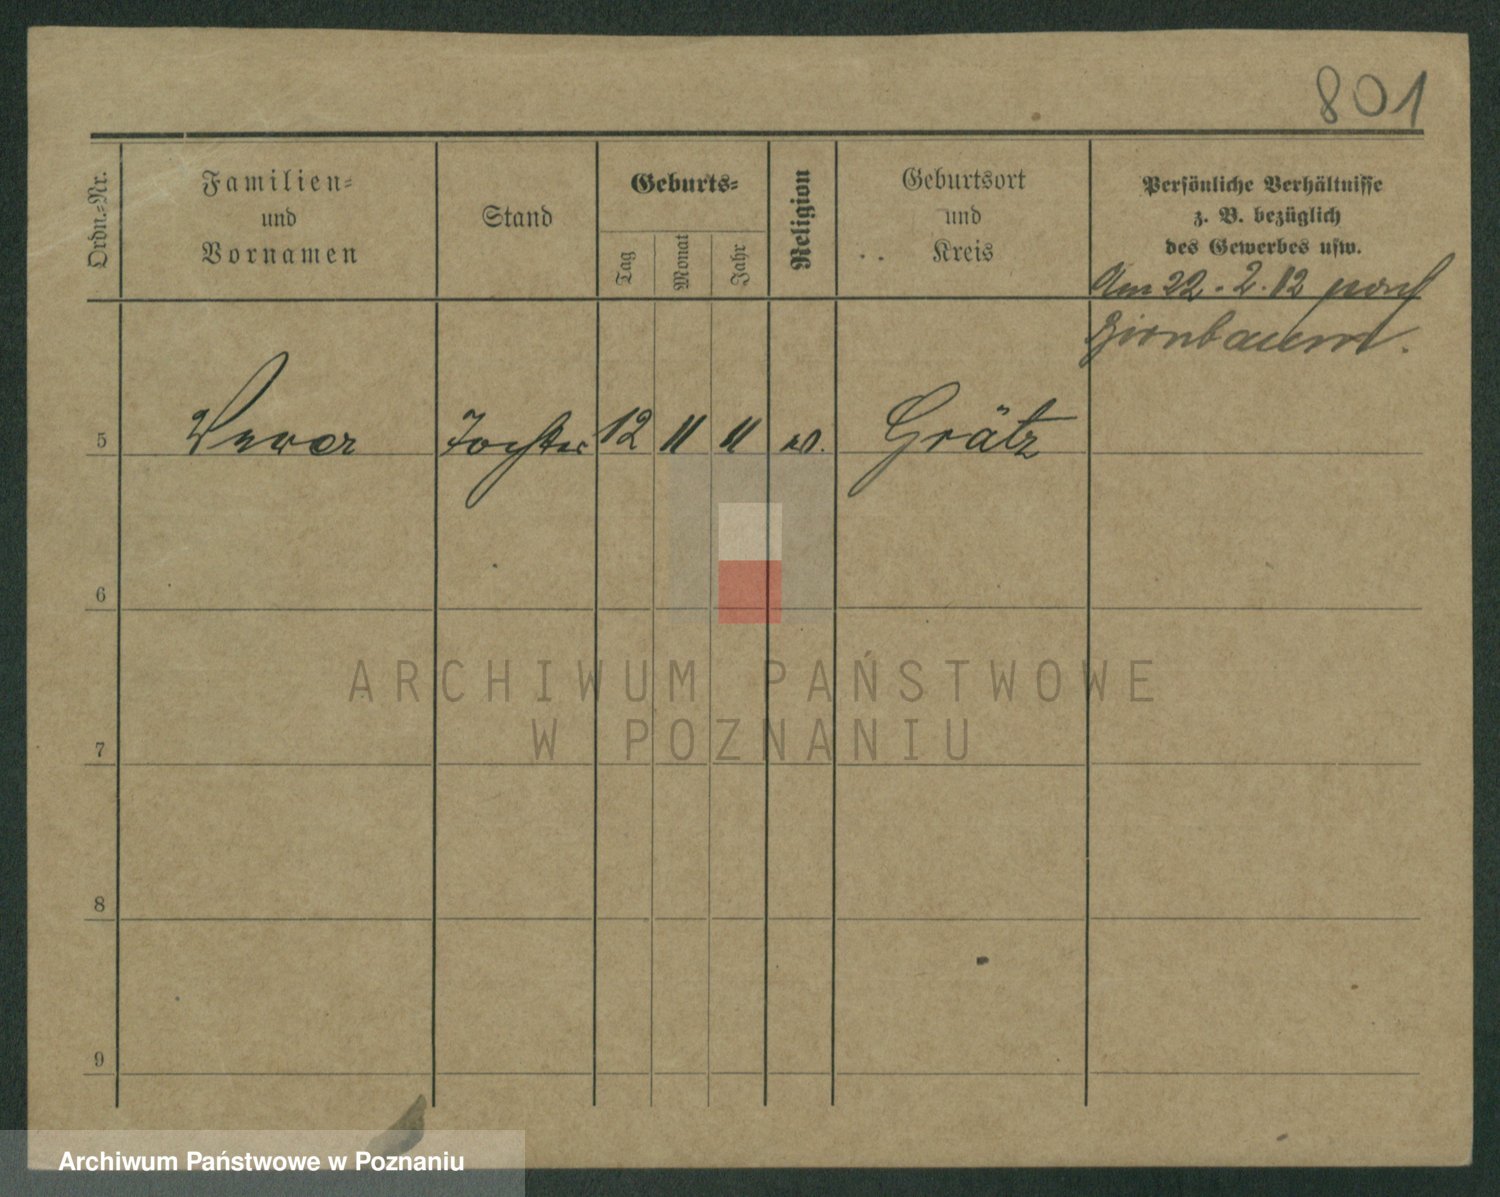 801
Ordn.-Nr.
Familien-
und
Vornamen
Stand
Geburts-
Tag
Monat
Jahr
Religion
Geburtsort
und
Kreis
Persönliche Verhältnisse
z. B. bezüglich
des Gewerbes usw.
Am 22. 2. 12 nach
Birnbaum.
5 Tochter 12 11 11 Grätz
6
7
8
9
ARCHIWUM PAŃSTWOWE
W POZNANIU
Archiwum Państwowe w Poznaniu